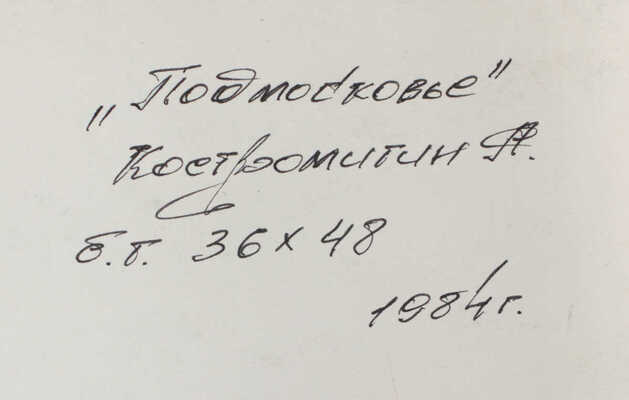 „Подмосковье"
Костромитин А.
б.т. 36х48
1984г.